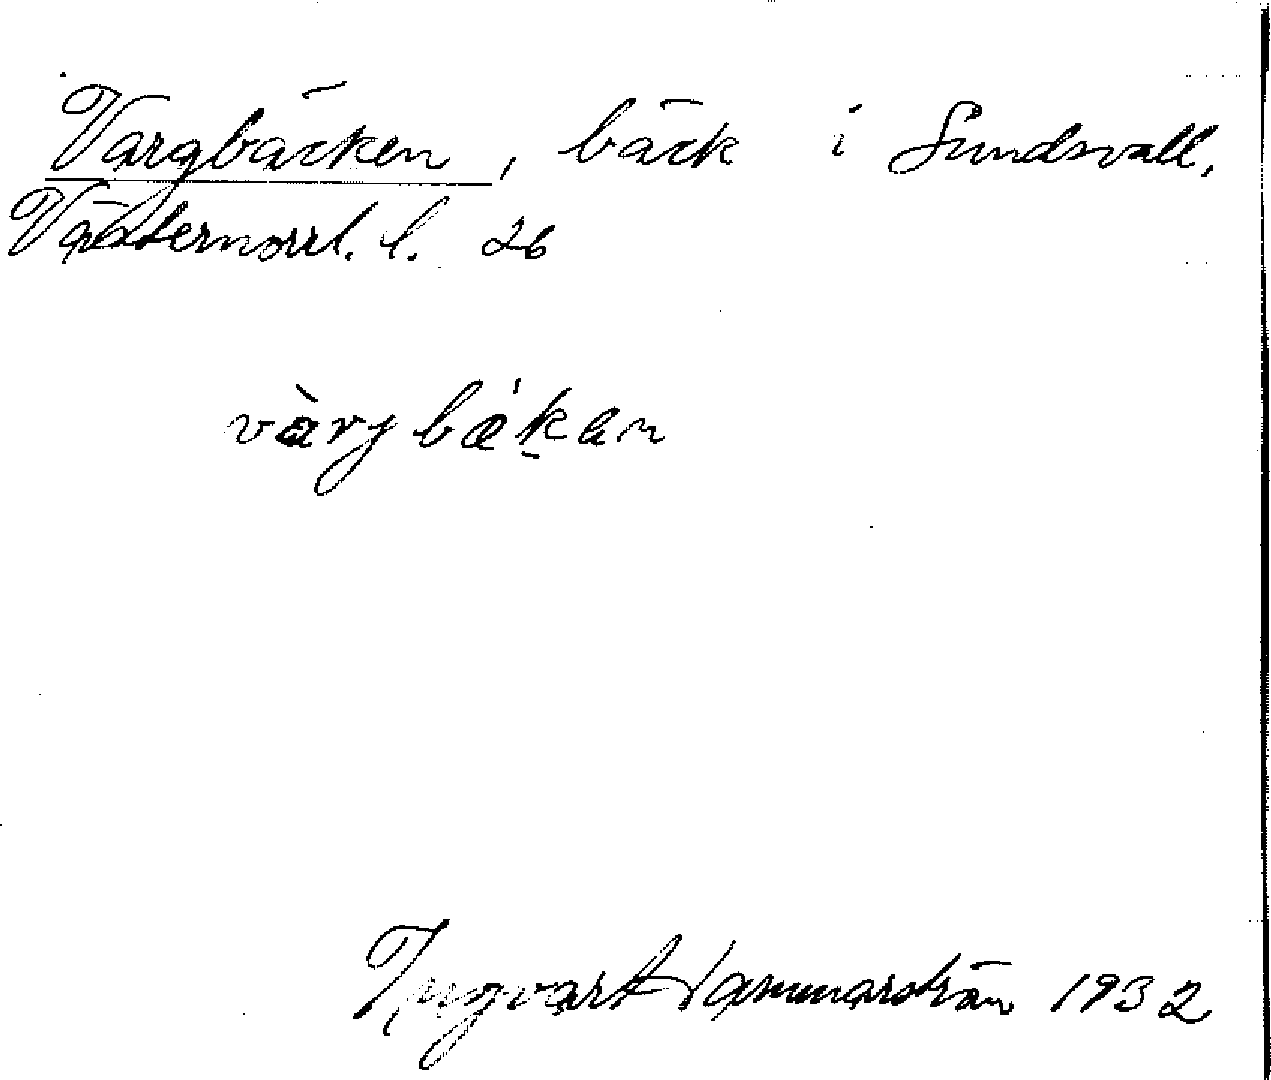 Vargbäcken, bäck i Sundsvall,
Västernorrl. l. 26
vàrgbækan
Ingvart Hammarström 1932